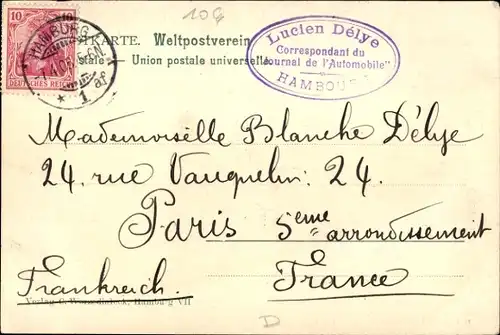 10G
10
DEUTSCHES REICH
HAMBURG
* 1
KARTE. Weltpostverein
Union postale universelle
Lucien Délye
Correspondant du
Journal de l'Automobile"
HAMBOURG
Mademoiselle Blanche Délye
24. rue Vauquelin. 24.
Paris 5eme arrondissement
Frankreich. France
Verlag Hamburg VII
D